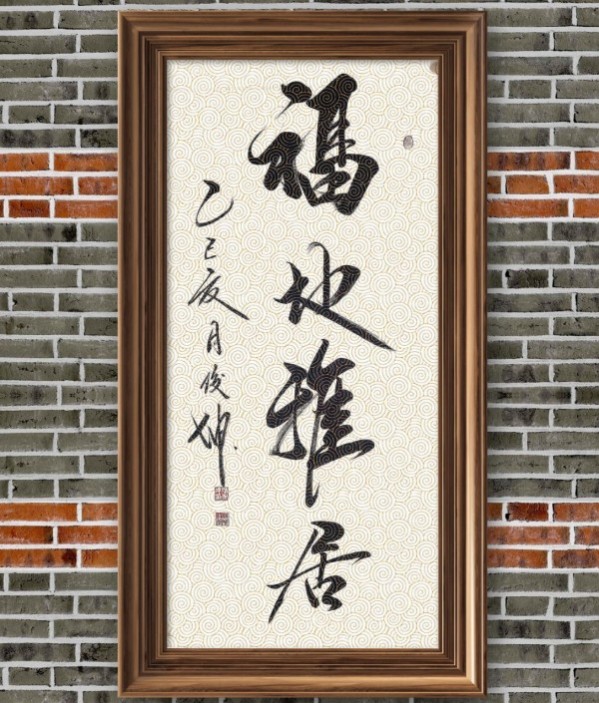 福地雅居
乙巳亥月俊坤